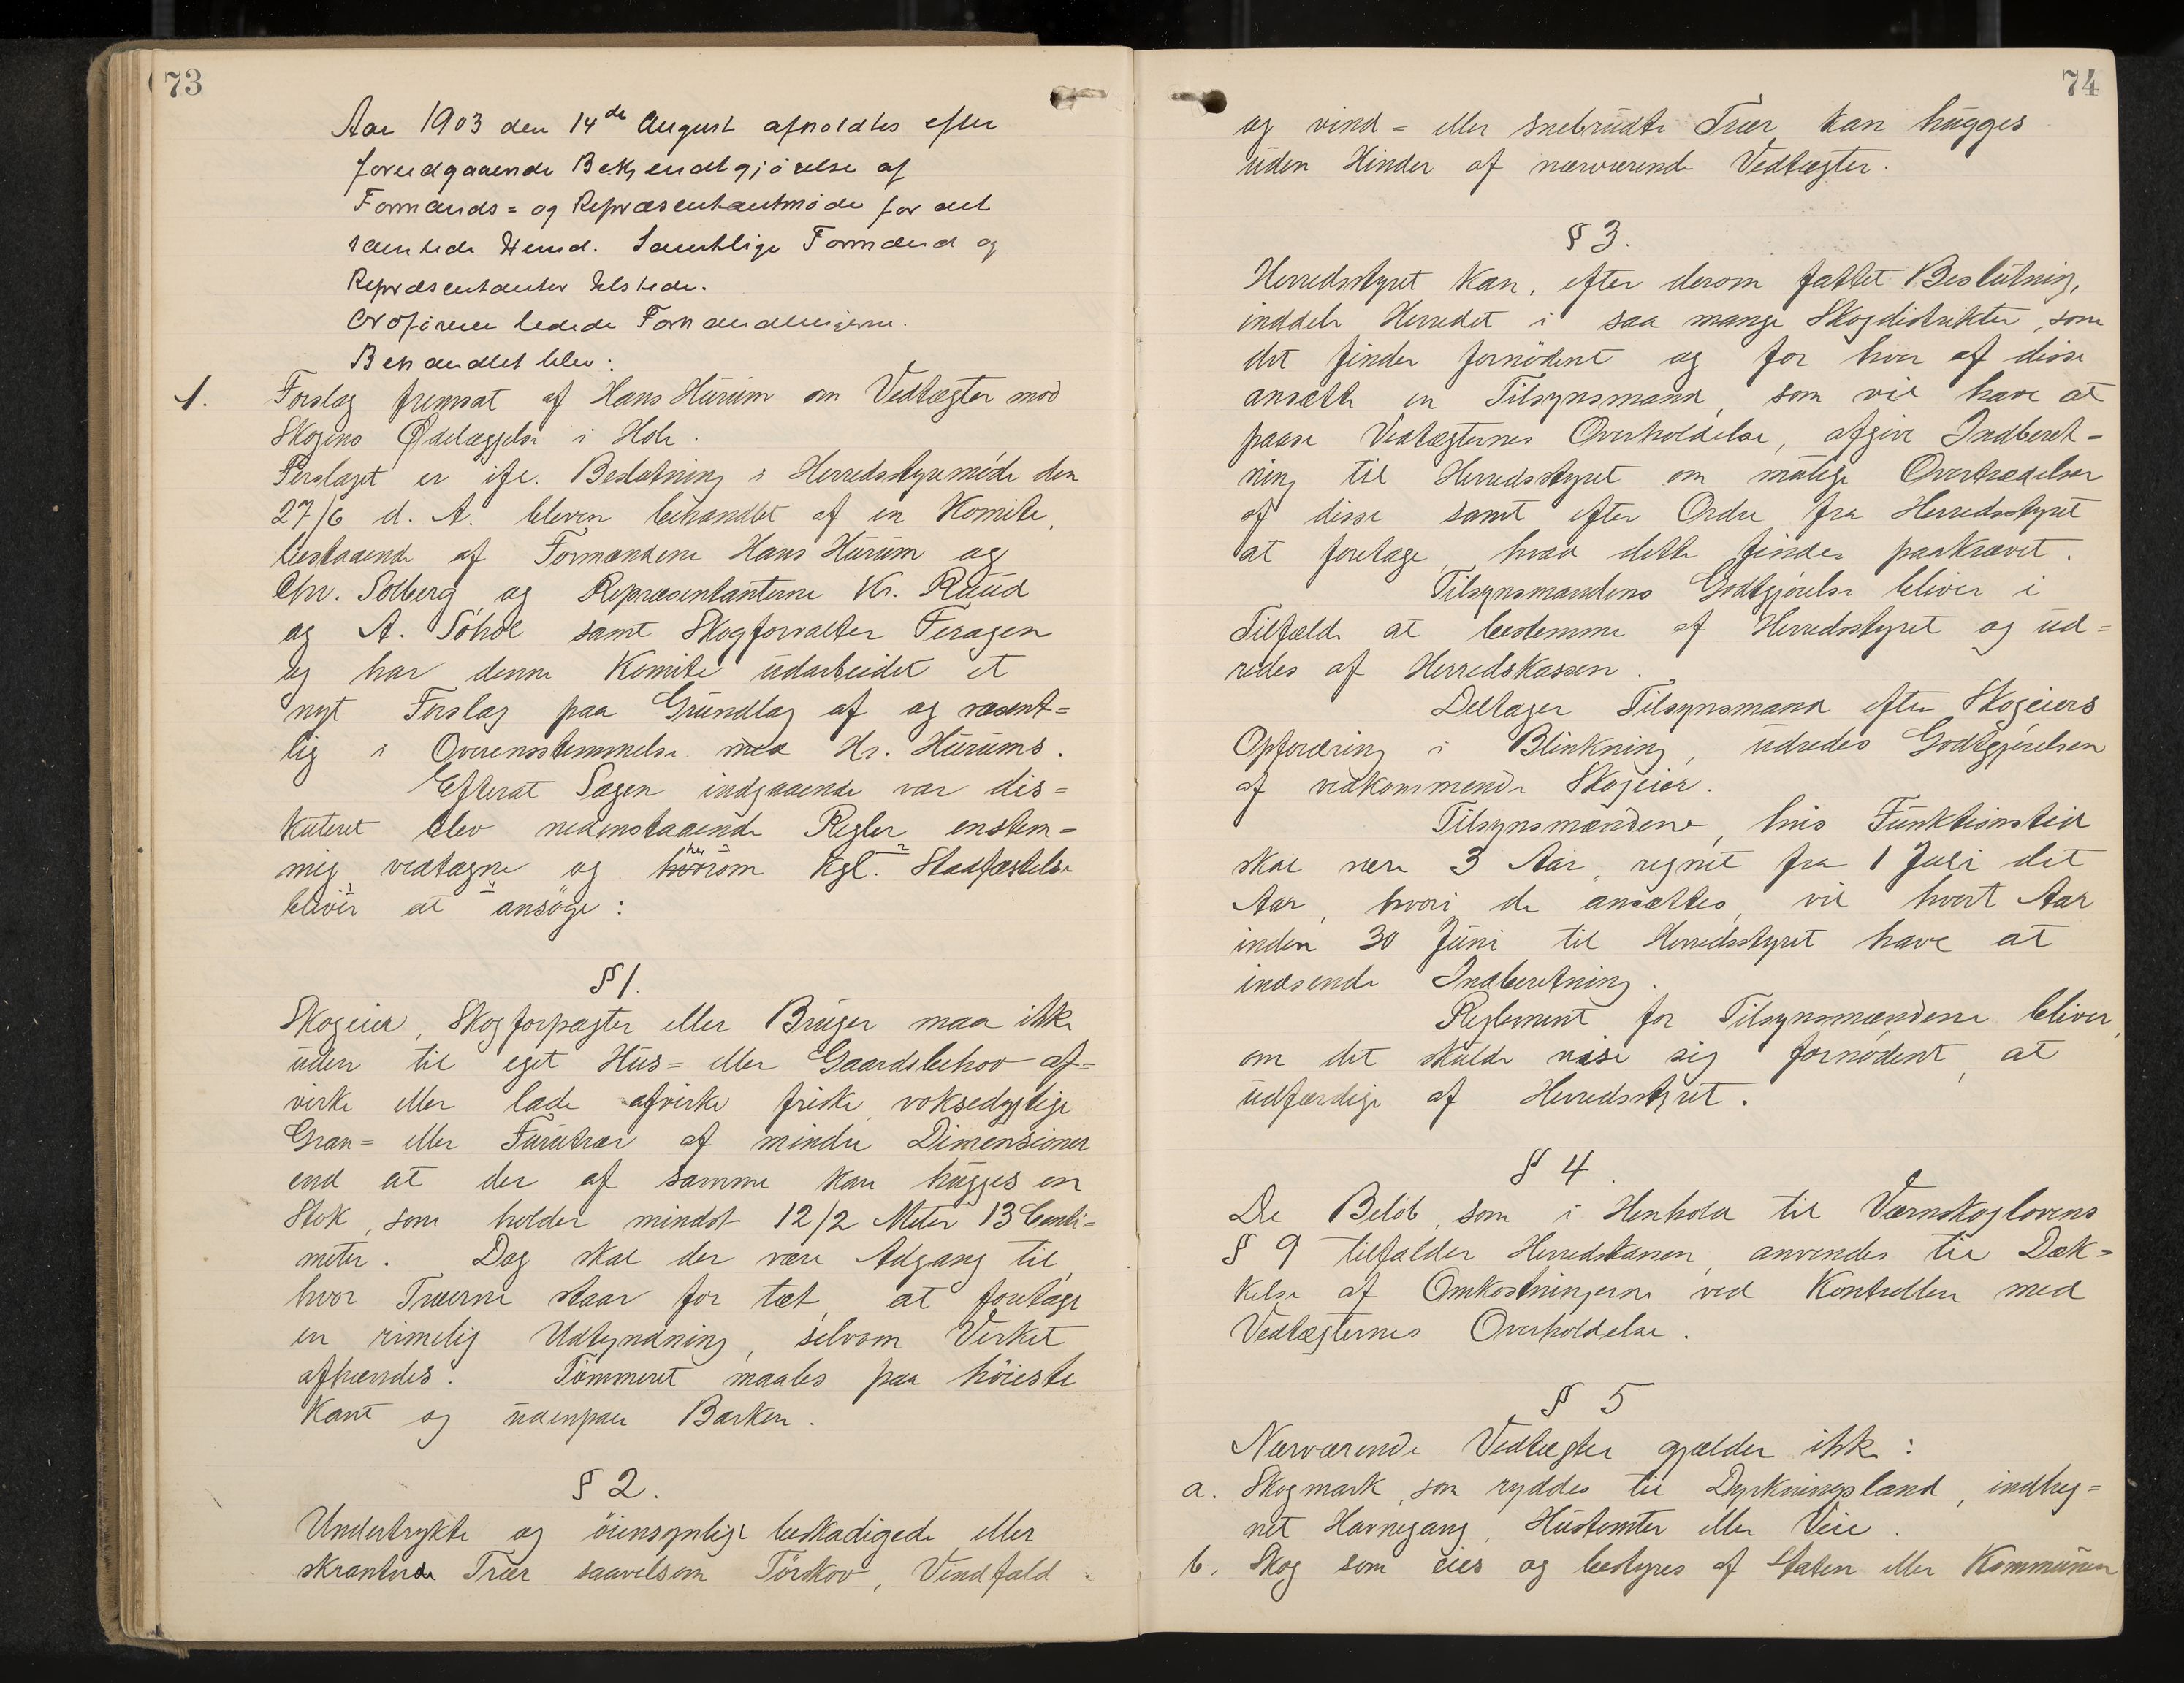 73
Aar 1903 den 14de August afholdtes efter
forudgaaende Bekjendtgjörelse af
Formands= og Repræsentantmöde for det
samlede Herred. Samtlige Formænd og
Repræsentanter tilstede.
Ordföreren ledede Forhandlingerne.
Behandlet blev:
1. Forslag fremsat af Hans Hürum om Vedtægter mod
Skogens Ødelæggelse i Hole.
Forslaget er ifl. Beslutning i Herredsstyremöde den
27/6 d. A. bleven behandlet af en Komite,
bestaaende af Formændene Hans Hürum og
Chr. Solberg og Repræsentanterne Kr. Ruud
og A. Söhol samt Skogforvalter Feragen
og har denne Komite udarbeidet et
nyt Forslag paa Grundlag af og væsent=
lig i Overensstemmelse med Hr. Hürums.
Efterat Sagen indgaaende var dis=
kuteret blev nedenstaaende Regler enstem=
mig vedtagne og herom Kgl. Stadfæstelse
bliver at ansöge:
§ 1.
Skogeier, Skogforpagter eller Bruger maa ikke
uden til eget Hus= eller Gaardsbehov af=
virke eller lade afvirke friske voksedygtige
Gran= eller Furutrær af mindre Dimensioner
end at der af samme kan hugges en
Stok, som holder mindst 12/2 Meter 13 Centi=
meter. Dog skal der være Adgang til,
hvor Trærne staar for tæt, at foretage
en rimelig Udtynding, selvom Virket
afhændes. Tömmeret maales paa höieste
Kant og udenpaa Barken.
§ 2.
Undertrykte og öiensynlige beskadigede eller
skrantende Trær saavelsom Törskov, Vindfald
74
og vind= eller snebrudte Trær kan hugges
uden Hinder af nærværende Vedtægter.
§ 3.
Herredsstyret kan, efter derom fattet Beslutning,
inddele Herredet i saa mange Skogdistrikter, som
det finder fornödent og for hver af disse
ansætte en Tilsynsmand, som vil have at
paase Vedtægternes Overholdelse, afgive Indberet=
ning til Herredsstyret om mulige Overtrædelser
af disse samt efter Ordre fra Herredsstyret
at foretage, hvad dette finder paakrævet.
Tilsynsmandens Godtgjörelse bliver i
Tilfælde at bestemme af Herredsstyret og ud=
redes af Herredskassen.
Deltager Tilsynsmand efter Skogeiers
Opfordring i Blinkning, udredes Godtgjörelsen
af vedkommende Skogeier.
Tilsynsmændene, hvis Funktionstid
skal være 3 Aar, regnet fra 1 Juli det
Aar, hvori de ansættes, vil hvert Aar
inden 30 Juni til Herredsstyret have at
indsende Indberetning.
Reglement for Tilsynsmændene bliver,
om det skulde vise sig fornödent, at
udfærdige af Herredsstyret.
§ 4.
De Belöb, som i Henhold til Værnskoglovens
§ 9 tilfalder Herredskassen, anvendes til Dæk=
kelse af Omkostningerne ved Kontrollen med
Vedtægternes Overholdelse.
§ 5
Nærværende Vedtægter gjælder ikke:
a. Skogmark, som ryddes til Dyrkningsland, indheg=
net Havnegang, Hustomter eller Veie.
b. Skog som eies og bestyres af Staten eller Kommunen